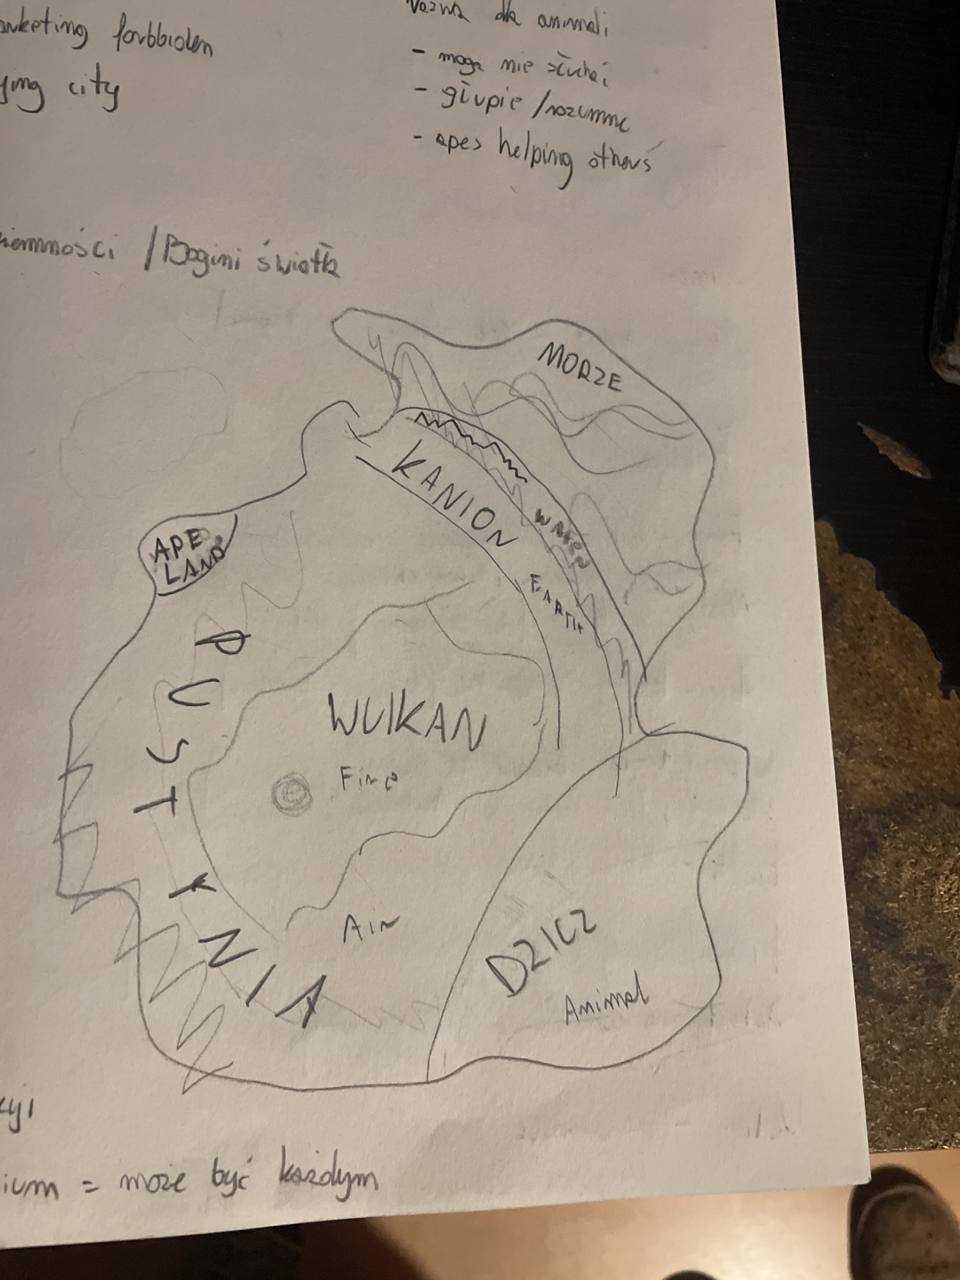 forbbiden
city
dla animali
- mogą nie słuchać
- głupie/rozumne
- apes helping others
/Bogini światła
MORZE
KANION
WATER
EARTH
APE
LAND
PUSTYNIA
WULKAN
Fire
Air
DZICZ
Animal
= może być każdym